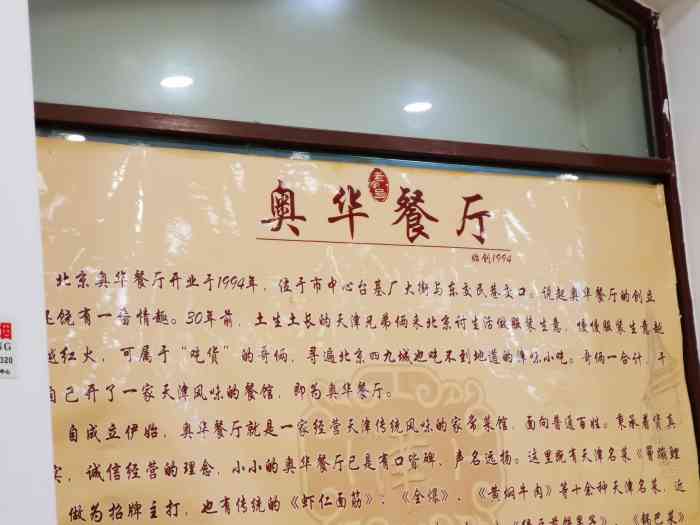 奥华餐厅
始创1994
北京奥华餐厅开业于1994年，位于市中心台基厂大街与东交民巷交口。说起奥华餐厅的创立
是饶有一番情趣。30年前，土生土长的天津兄弟俩来北京讨生活做服装生意，慢慢服装生意越
越红火，可属于“吃货”的哥俩，寻遍北京四九城也吃不到地道的津味小吃。哥俩一合计，干
自己开了一家天津风味的餐馆，即为奥华餐厅。
自成立伊始，奥华餐厅就是一家经营天津传统风味的家常菜馆，面向普通百姓。秉承着货真
实，诚信经营的理念，小小的奥华餐厅已是有口皆碑，声名远扬。这里既有天津名菜《罾蹦鲤
做为招牌主打，也有传统的《虾仁面筋》：《全爆》、《黄焖牛肉》等十余种天津名菜，近
《锅巴菜》
NG
320